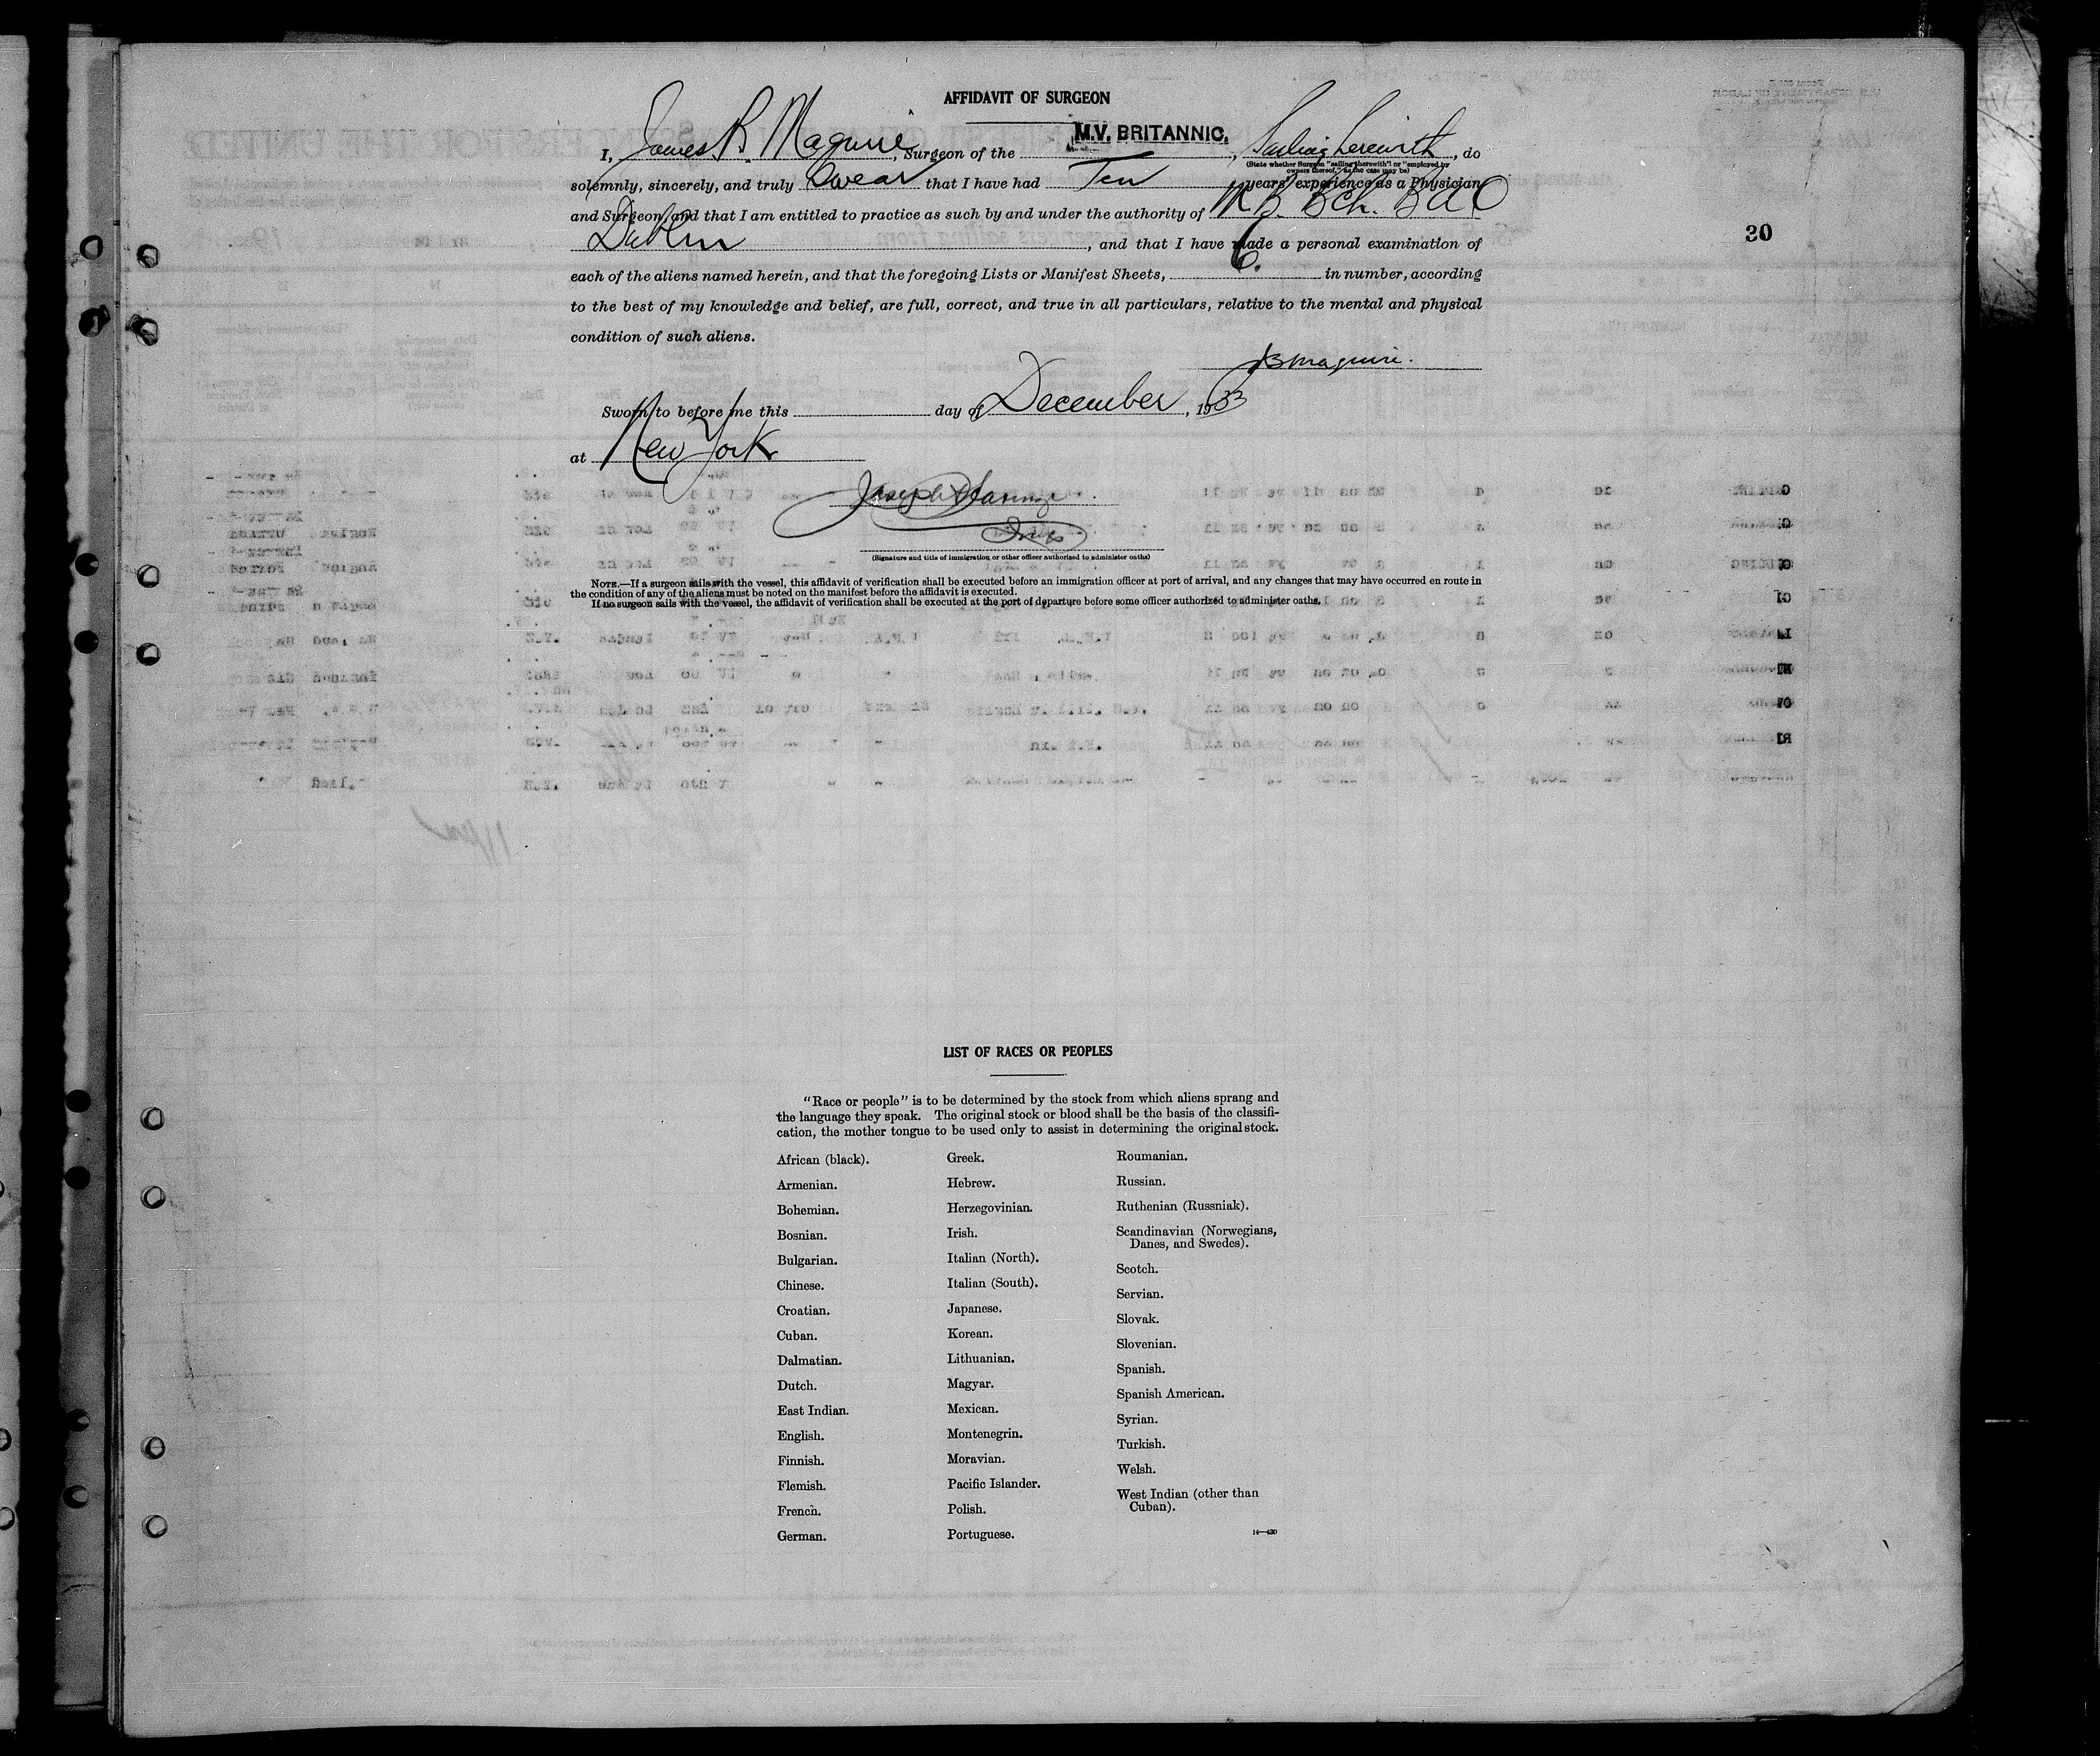 AFFIDAVIT OF SURGEON
I, James R. Maguire, Surgeon of the M.V. BRITANNIC, Sailing herewith, do
(State whether Surgeon "sailing therewith" or "employed by
owners thereof," as the case may be)
solemnly, sincerely, and truly Swear that I have had Ten years' experience as a Physician
and Surgeon, and that I am entitled to practice as such by and under the authority of M.B. Bch. BAO
Dublin, and that I have made a personal examination of
30
each of the aliens named herein, and that the foregoing Lists or Manifest Sheets, 6. in number, according
to the best of my knowledge and belief, are full, correct, and true in all particulars, relative to the mental and physical
condition of such aliens.
JBMaguire.
Sworn to before me this day of December, 1933
at New York
Joseph
(Signature and title of immigration or other officer authorized to administer oaths)
NOTE.—If a surgeon sails with the vessel, this affidavit of verification shall be executed before an immigration officer at port of arrival, and any changes that may have occurred en route in
the condition of any of the aliens must be noted on the manifest before the affidavit is executed.
If no surgeon sails with the vessel, the affidavit of verification shall be executed at the port of departure before some officer authorized to administer oaths.
LIST OF RACES OR PEOPLES
"Race or people" is to be determined by the stock from which aliens sprang and
the language they speak. The original stock or blood shall be the basis of the classifi-
cation, the mother tongue to be used only to assist in determining the original stock.
African (black).
Armenian.
Bohemian.
Bosnian.
Bulgarian.
Chinese.
Croatian.
Cuban.
Dalmatian.
Dutch.
East Indian.
English.
Finnish.
Flemish.
French.
German.
Greek.
Hebrew.
Herzegovinian.
Irish.
Italian (North).
Italian (South).
Japanese.
Korean.
Lithuanian.
Magyar.
Mexican.
Montenegrin.
Moravian.
Pacific Islander.
Polish.
Portuguese.
Roumanian.
Russian.
Ruthenian (Russniak).
Scandinavian (Norwegians,
Danes, and Swedes).
Scotch.
Servian.
Slovak.
Slovenian.
Spanish.
Spanish American.
Syrian.
Turkish.
Welsh.
West Indian (other than
Cuban).
14—430